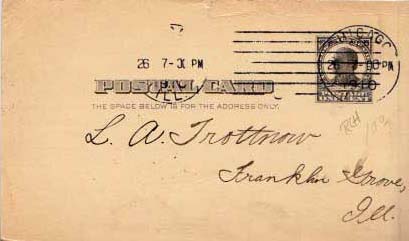 CHICAGO
26 7-30 PM 26 7-00 PM
1910
ILL.
POSTAL CARD
THE SPACE BELOW IS FOR THE ADDRESS ONLY.
L. A. Trottnow
Franklin Grove,
Ill.